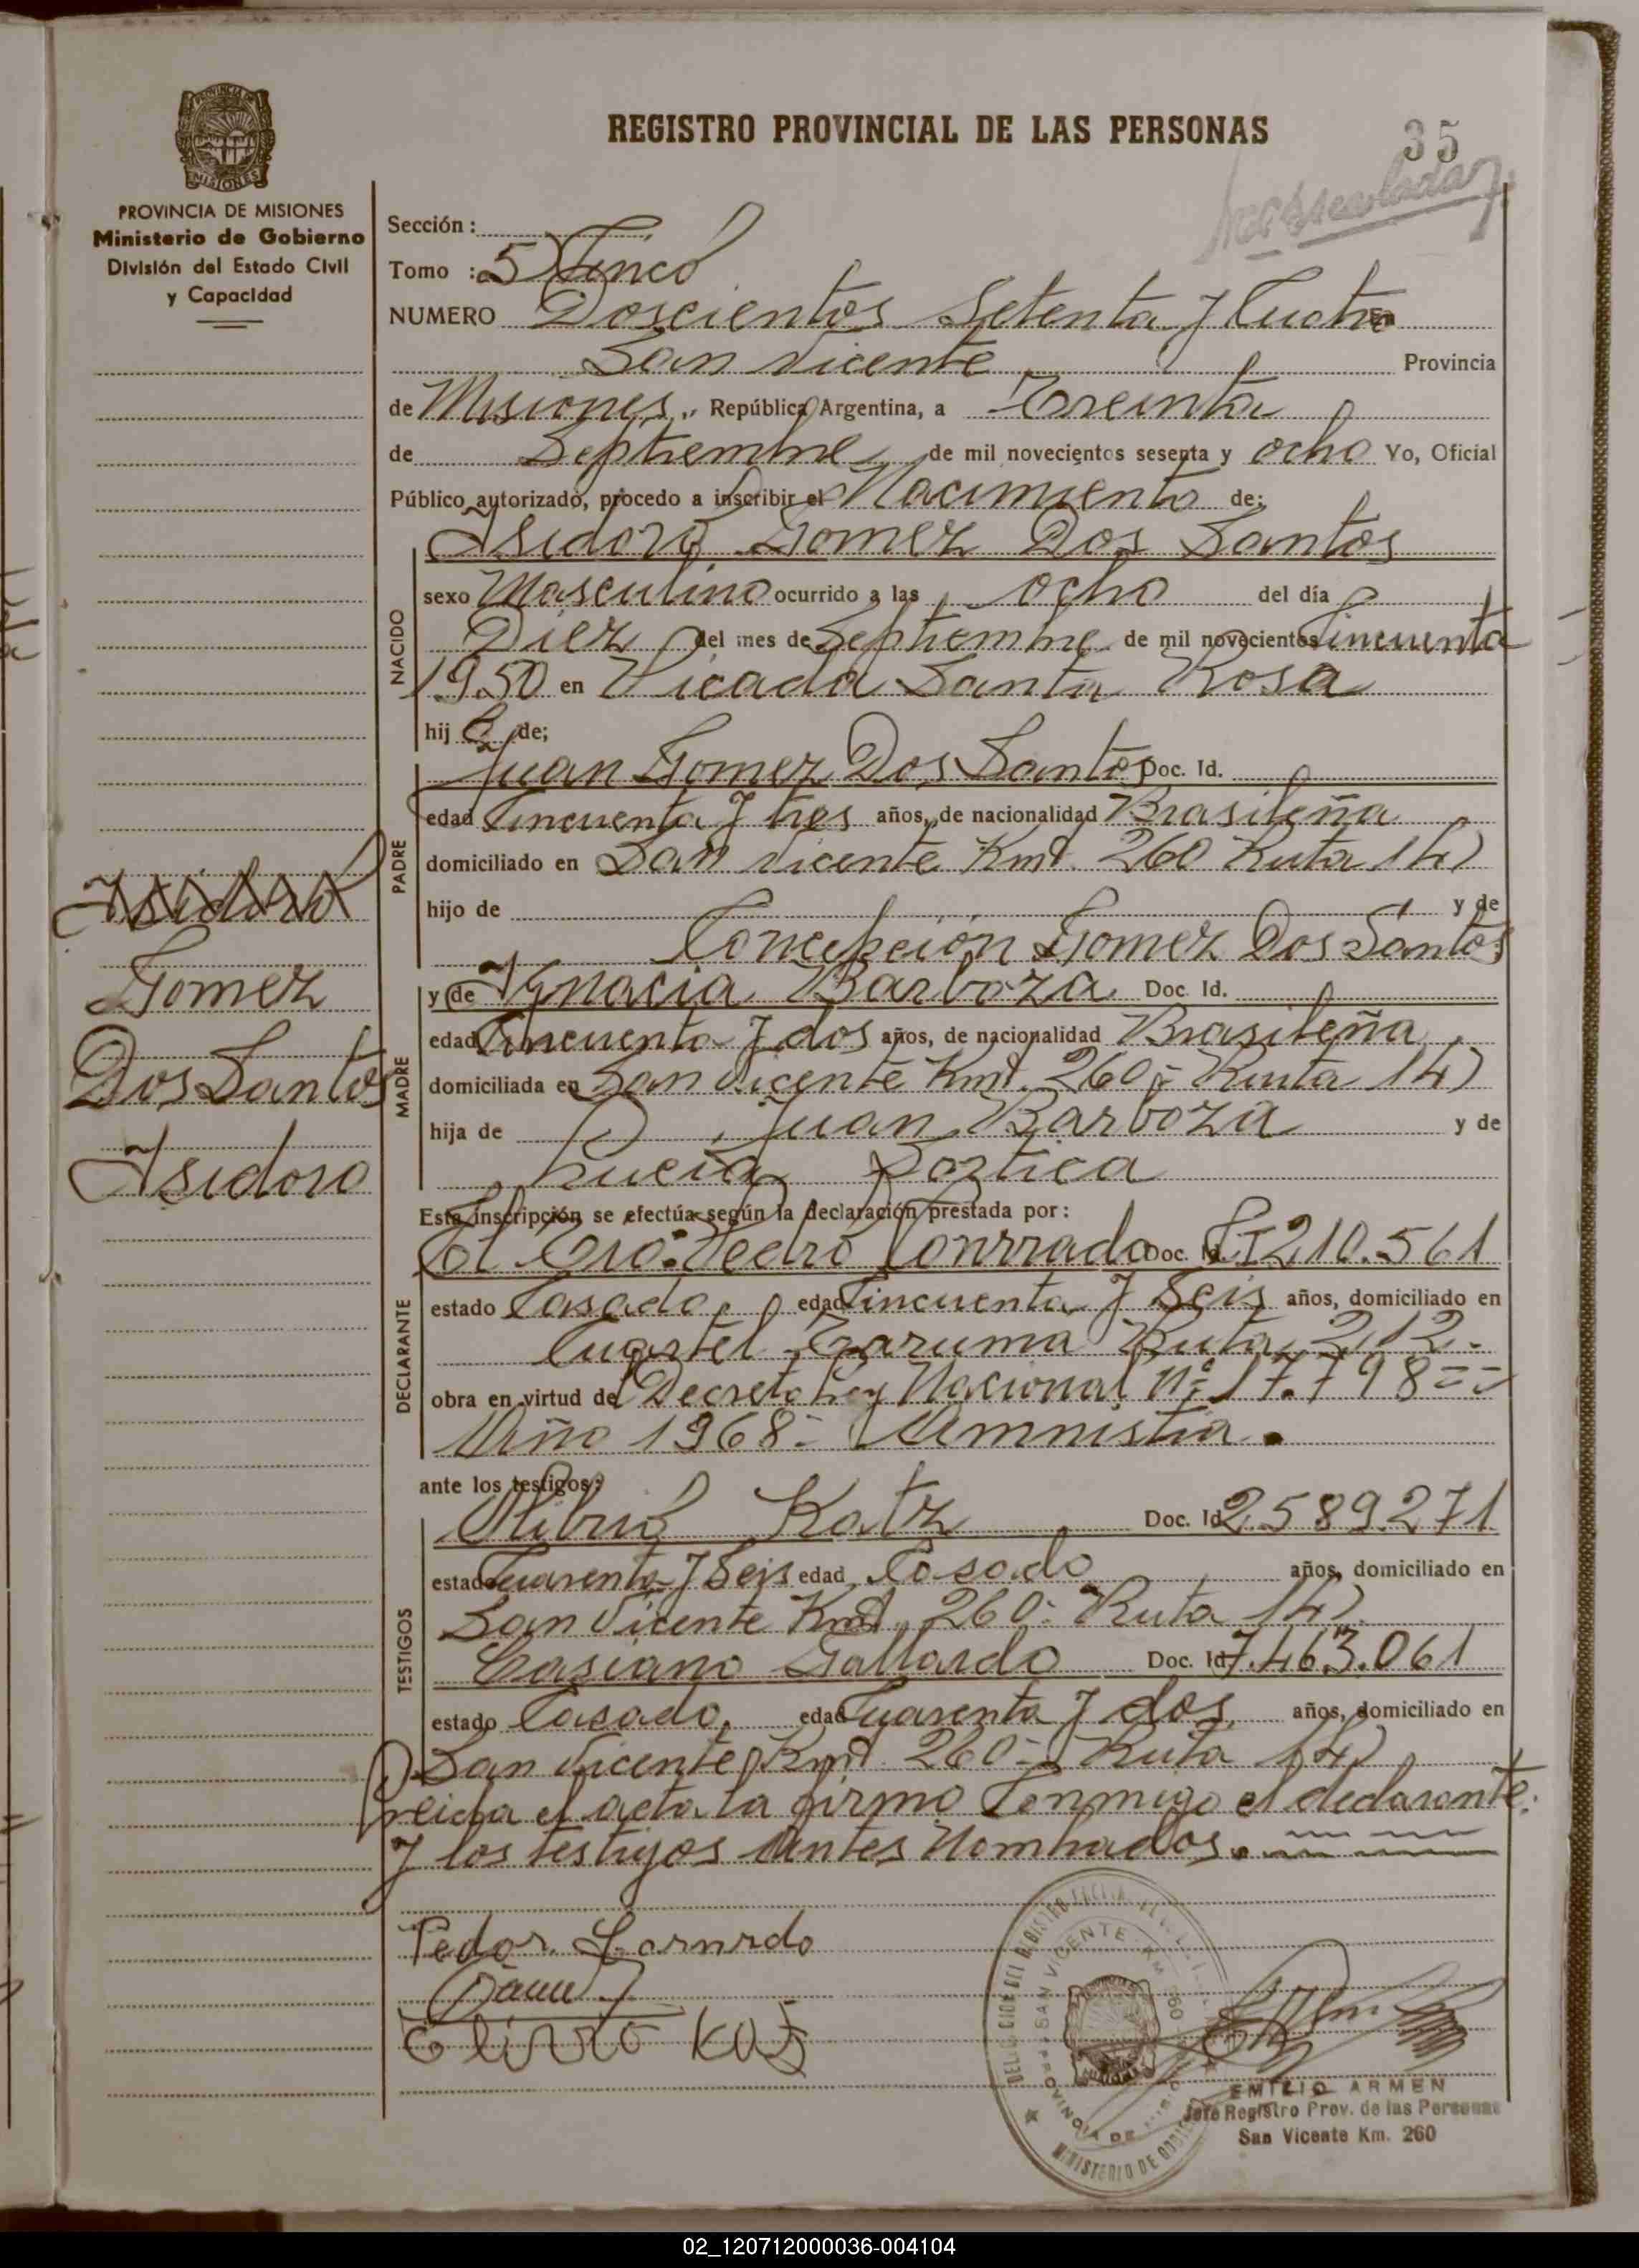 REGISTRO PROVINCIAL DE LAS PERSONAS
35
MISIONES
PROVINCIA DE MISIONES
Ministerio de Gobierno
División del Estado Civil
y Capacidad
Sección :
Tomo : 5 Cinco
NUMERO Doscientos Setenta y Cuatro
San Vicente Provincia
de Misiones, República Argentina, a Treinta
de Septiembre de mil novecientos sesenta y ocho Yo, Oficial
Público autorizado, procedo a inscribir el Nacimiento de;
Isidoro Gomez Dos Santos
NACIDO
sexo Masculino ocurrido a las ocho del día
Diez del mes de Septiembre de mil novecientos Cincuenta
1950 en Picada Santa Rosa
hij o de;
Juan Gomez Dos Santos Doc. Id.
PADRE
edad Cincuenta y tres años, de nacionalidad Brasileña
domiciliado en San Vicente Kmt. 260 Ruta 14)
hijo de y de
Concepción Gomez Dos Santos
y de Ygnacia Barboza Doc. Id.
MADRE
edad Cincuenta y dos años, de nacionalidad Brasileña
domiciliada en San Vicente Kmt. 260- Ruta 14)
hija de Juan Barboza y de
Lucia
Isidoro
Gomez
Dos Santos
Isidoro
Esta inscripción se efectúa según la declaración prestada por:
El Pedro Conrrado Doc. Id. 210.561
DECLARANTE
estado Casado, edad Cincuenta y Seis años, domiciliado en
Cuartel Taruma Ruta 212-
obra en virtud del Decreto Ley Nacional nº 17.798==
Año 1968- Amnistia.
ante los testigos:
TESTIGOS
Katz Doc. Id 2.589.271
estado Cuarenta y Seis edad Casado años, domiciliado en
San Vicente Kmt. 260- Ruta 14)
Casiano Gallardo Doc. Id 7.463.061
estado Casado, edad Cuarenta y dos, años, domiciliado en
San Vicente Kmt 260- Ruta 14)
Leida el acta la firmo Conmigo el declarante
y los testigos Antes Nombrados.
EMILIO ARMEN
Jefe Registro Prov. de las Personas
San Vicente Km. 260
02_120712000036-004104